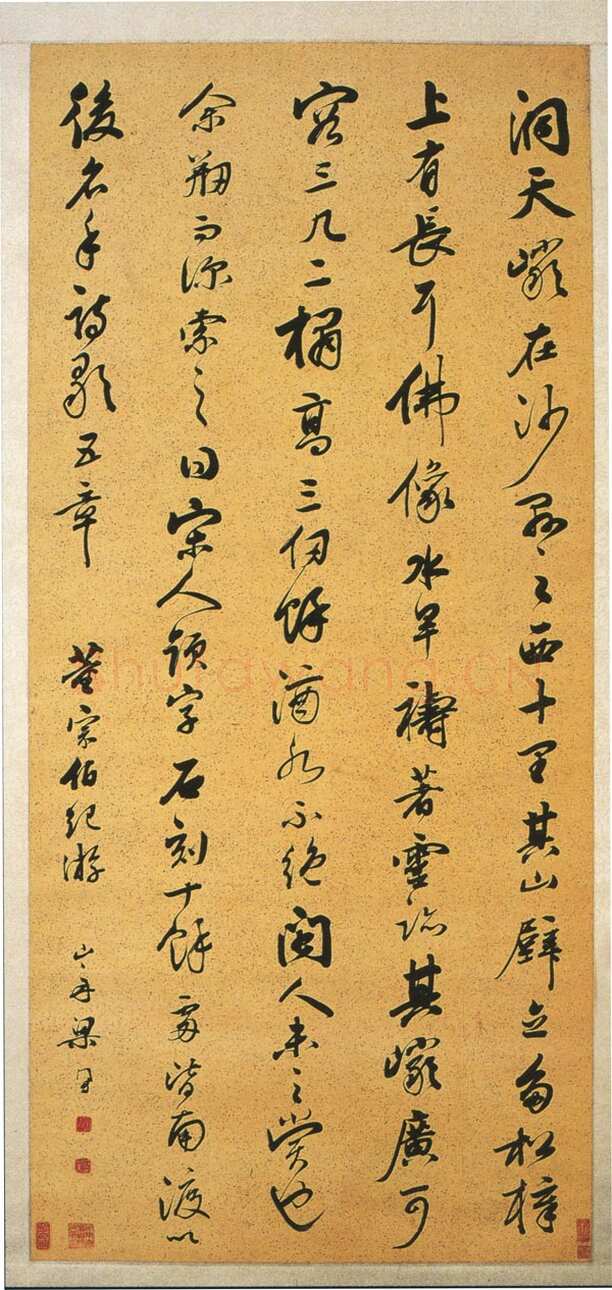 洞天巖在沙縣之西十里其山壁立多松樟
上有長耳佛像水旱禱著靈跡其巖廣可
容三几二榻高三仞餘滴水不絕閩人未之賞也
余剏而深索之曰宋人題字石刻十餘處皆南渡以
後名手詩歌五章 董宗伯紀游
山舟梁同書